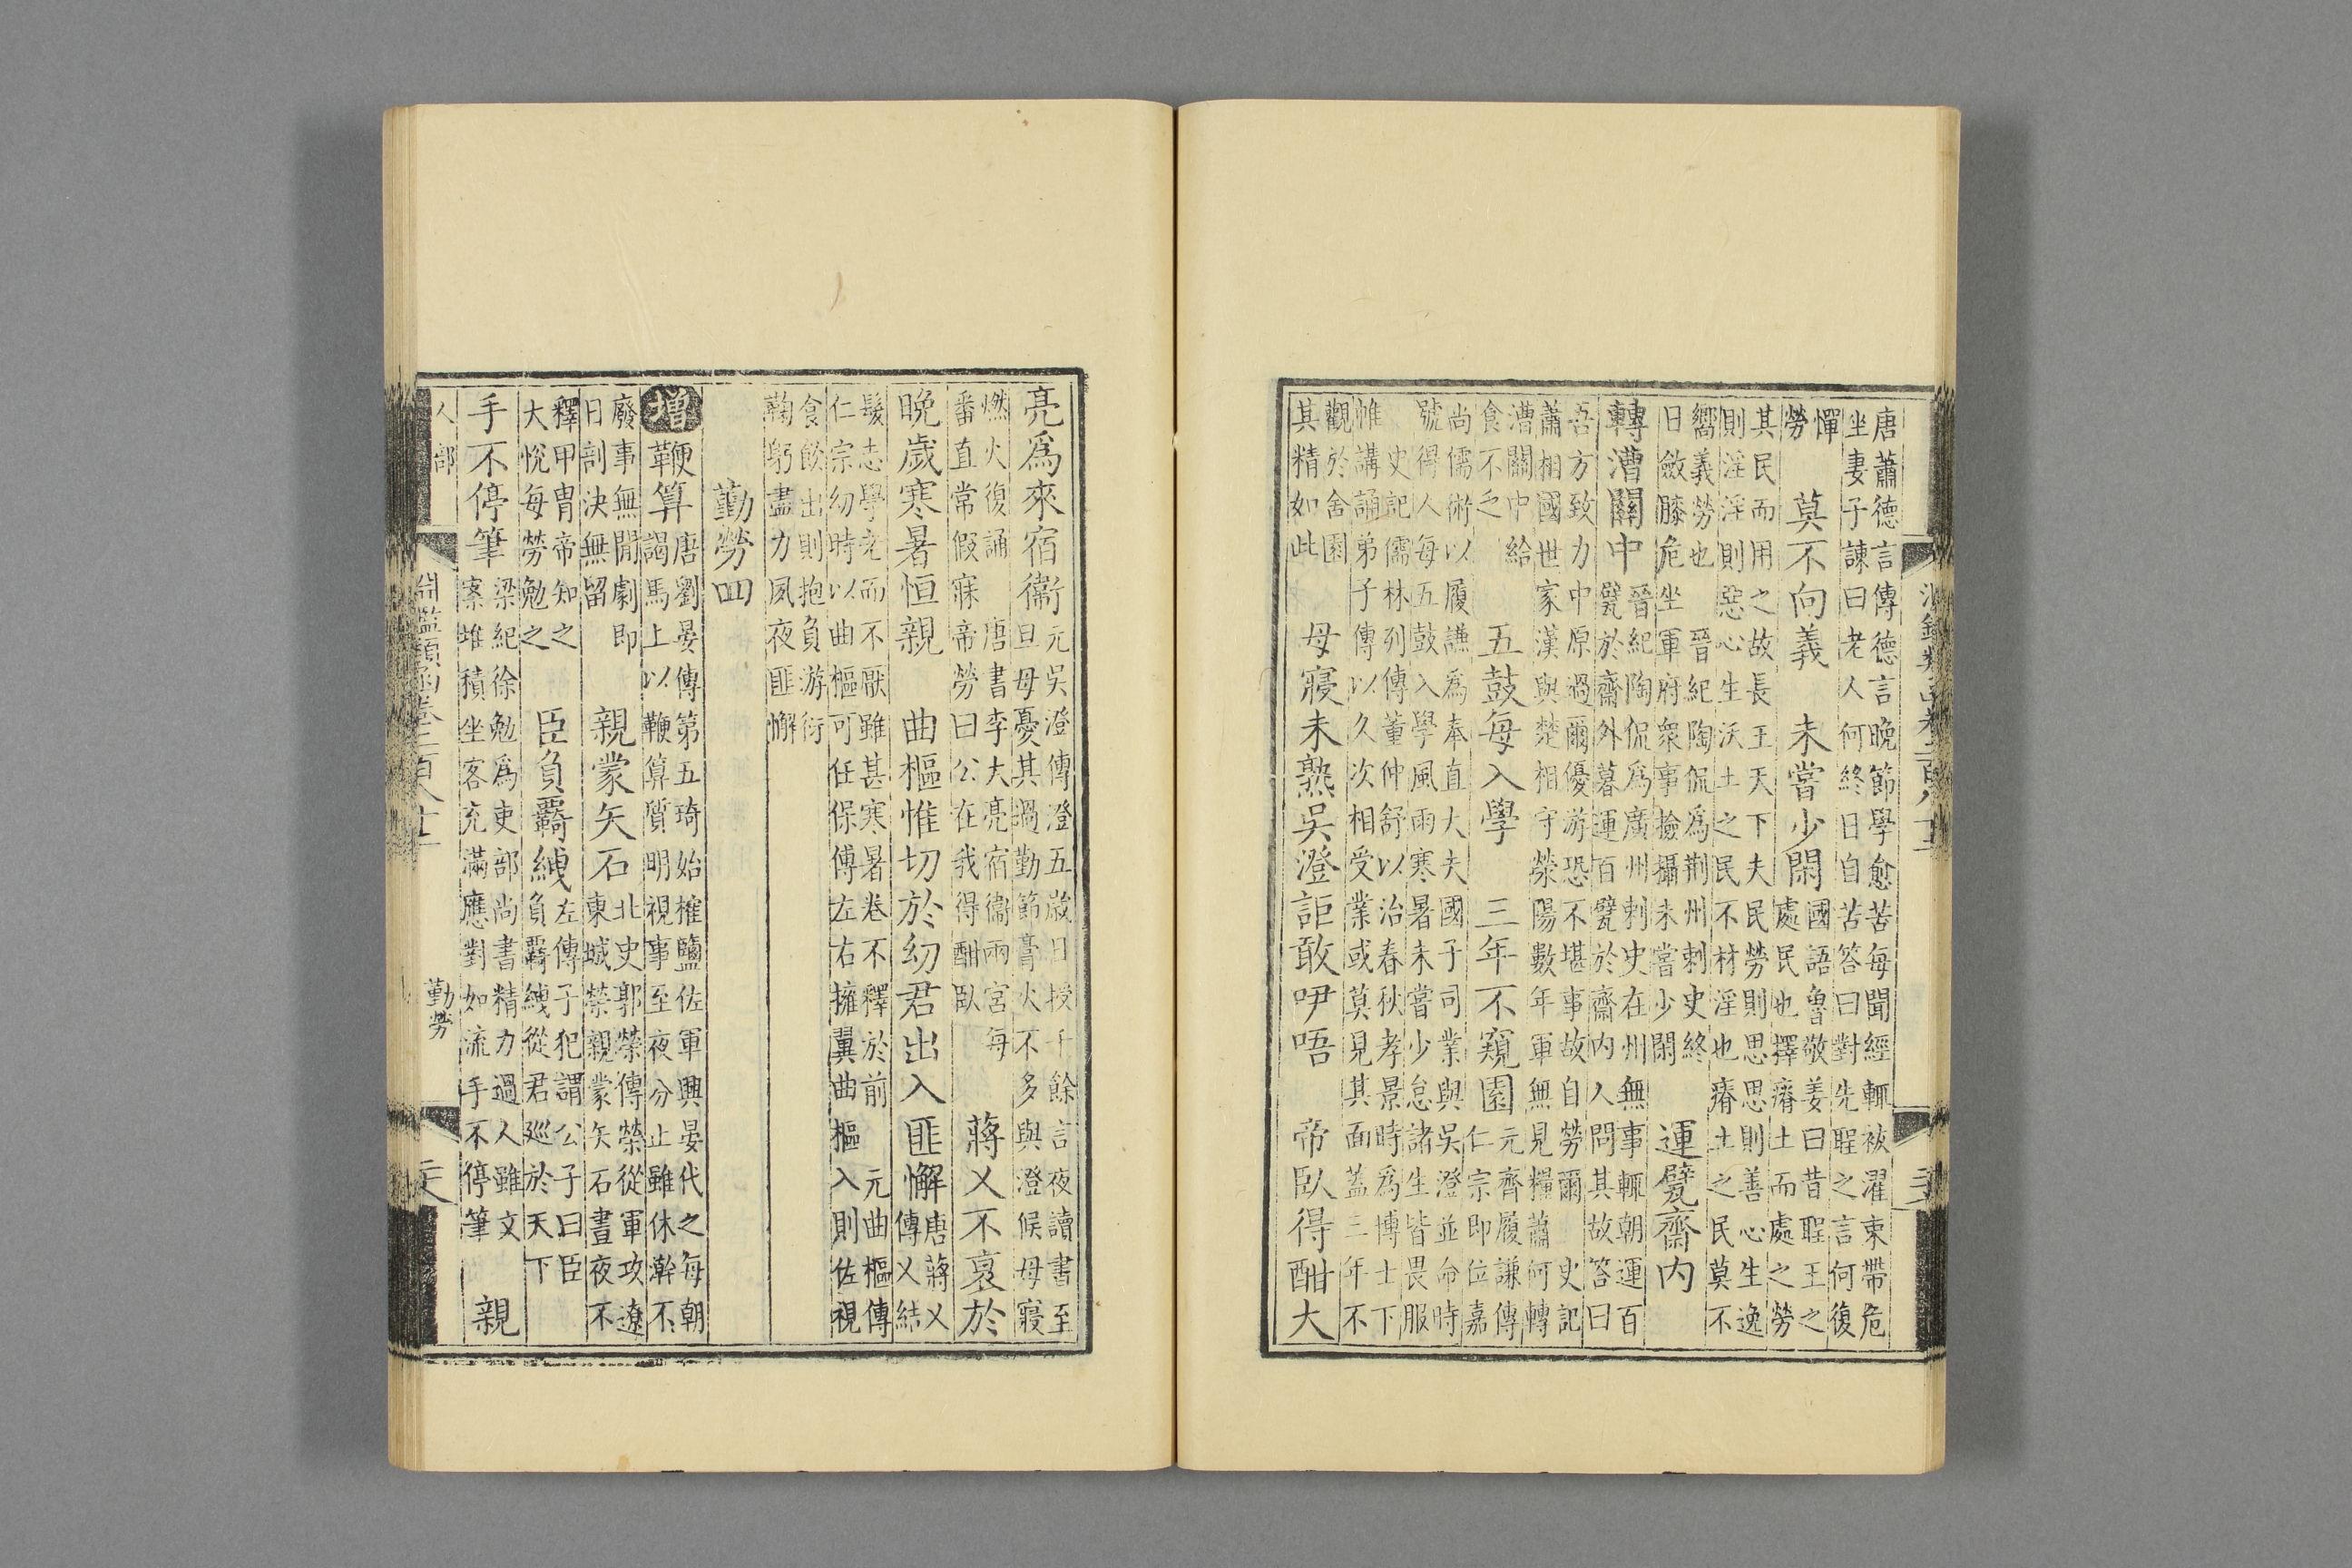 唐蕭德言傳德言晚節學愈苦每聞經輒祓濯束帶危
坐妻子諫曰老人何終日自苦答曰對先聖之言何復
憚
勞
莫不向義 未嘗少閑
國語魯敬姜曰昔聖王之
處民也擇瘠土而處之勞
其民而用之故長王天下夫民勞則思思則善心生逸
則淫淫則惡心生沃土之民不材淫也瘠土之民莫不
嚮義勞也 晉紀陶侃爲荆州刺史終
日斂膝危坐軍府衆事撿攝未嘗少閑
運甓齋內
轉漕關中
晉紀陶侃爲廣州刺史在州無事輒朝運百
甓於齋外暮運百甓於齋內人問其故答曰
吾方致力中原過爾優游恐不堪事故自勞爾 史記
蕭相國世家漢與楚相守滎陽數年軍無見糧蕭何轉
漕關中給
食不乏
五鼓每入學 三年不窺園
元齊履謙傳
仁宗即位嘉
尚儒術以履謙爲奉直大夫國子司業與吳澄並命時
號得人每五鼓入學風雨寒暑未嘗少怠諸生皆畏服
史記儒林列傳董仲舒以治春秋孝景時爲博士下
帷講誦弟子傳以久次相受業或莫見其面蓋三年不
觀於舍園
其精如此
母寢未熟吳澄詎敢咿唔 帝臥得酣大
亮爲來宿衞
元吳澄傳澄五歲日授千餘言夜讀書至
旦母憂其過勤節膏火不多與澄候母寢
燃火復誦 唐書李大亮宿衞兩宮每
番直常假寐帝勞曰公在我得酣臥
蔣乂不衰於
晚歲寒暑恒親 曲樞惟切於幼君出入匪懈
唐蔣乂
傳乂結
髮志學老而不厭雖甚寒暑卷不釋於前 元曲樞傳
仁宗幼時以曲樞可任保傅左右擁翼曲樞入則佐視
食飲出則抱負游衍
鞠躬盡力夙夜匪懈
勤勞四
增 鞭算
唐劉晏傳第五琦始榷鹽佐軍興晏代之每朝
謁馬上以鞭算質明視事至夜分止雖休澣不
廢事無閒劇即
日剖決無留
親蒙矢石
北史郭榮傳榮從軍攻遼
東城榮親蒙矢石晝夜不
釋甲冑帝知之
大悅每勞勉之
臣負羈紲
左傳子犯謂公子曰臣
負羈紲從君巡於天下
手不停筆
梁紀徐勉爲吏部尚書精力過人雖文
案堆積坐客充滿應對如流手不停筆
親
人部
勤勞